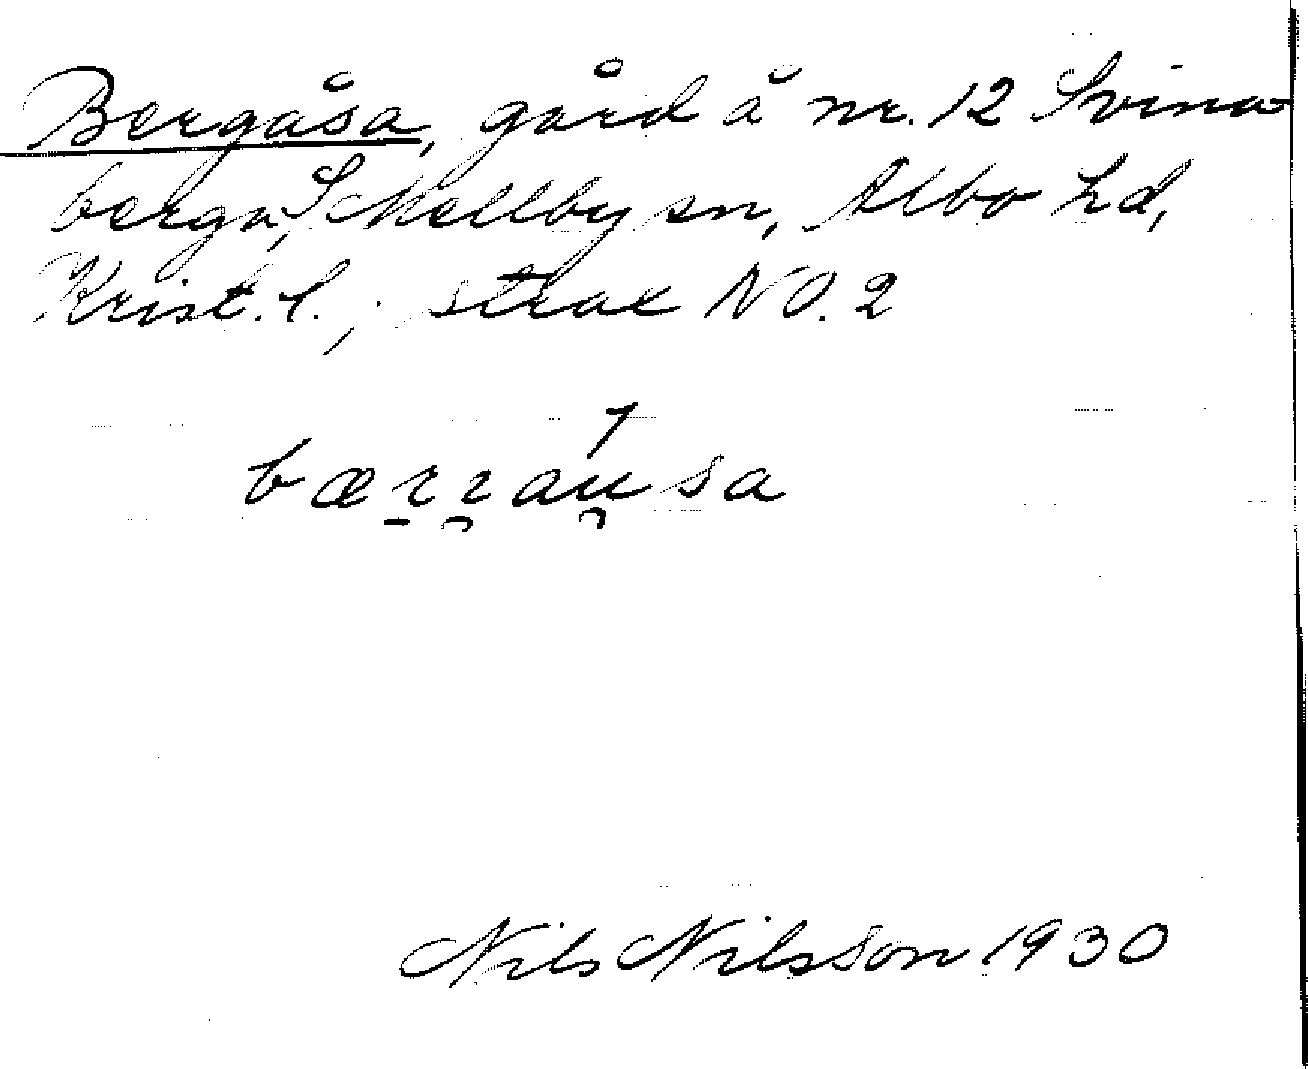 Bergåsa, gård å nr. 12 Svina
berga, S Mellby sn, Albo hd,
Krist. l.; strax NO. 2
bærrausa
Nils Nilsson 1930